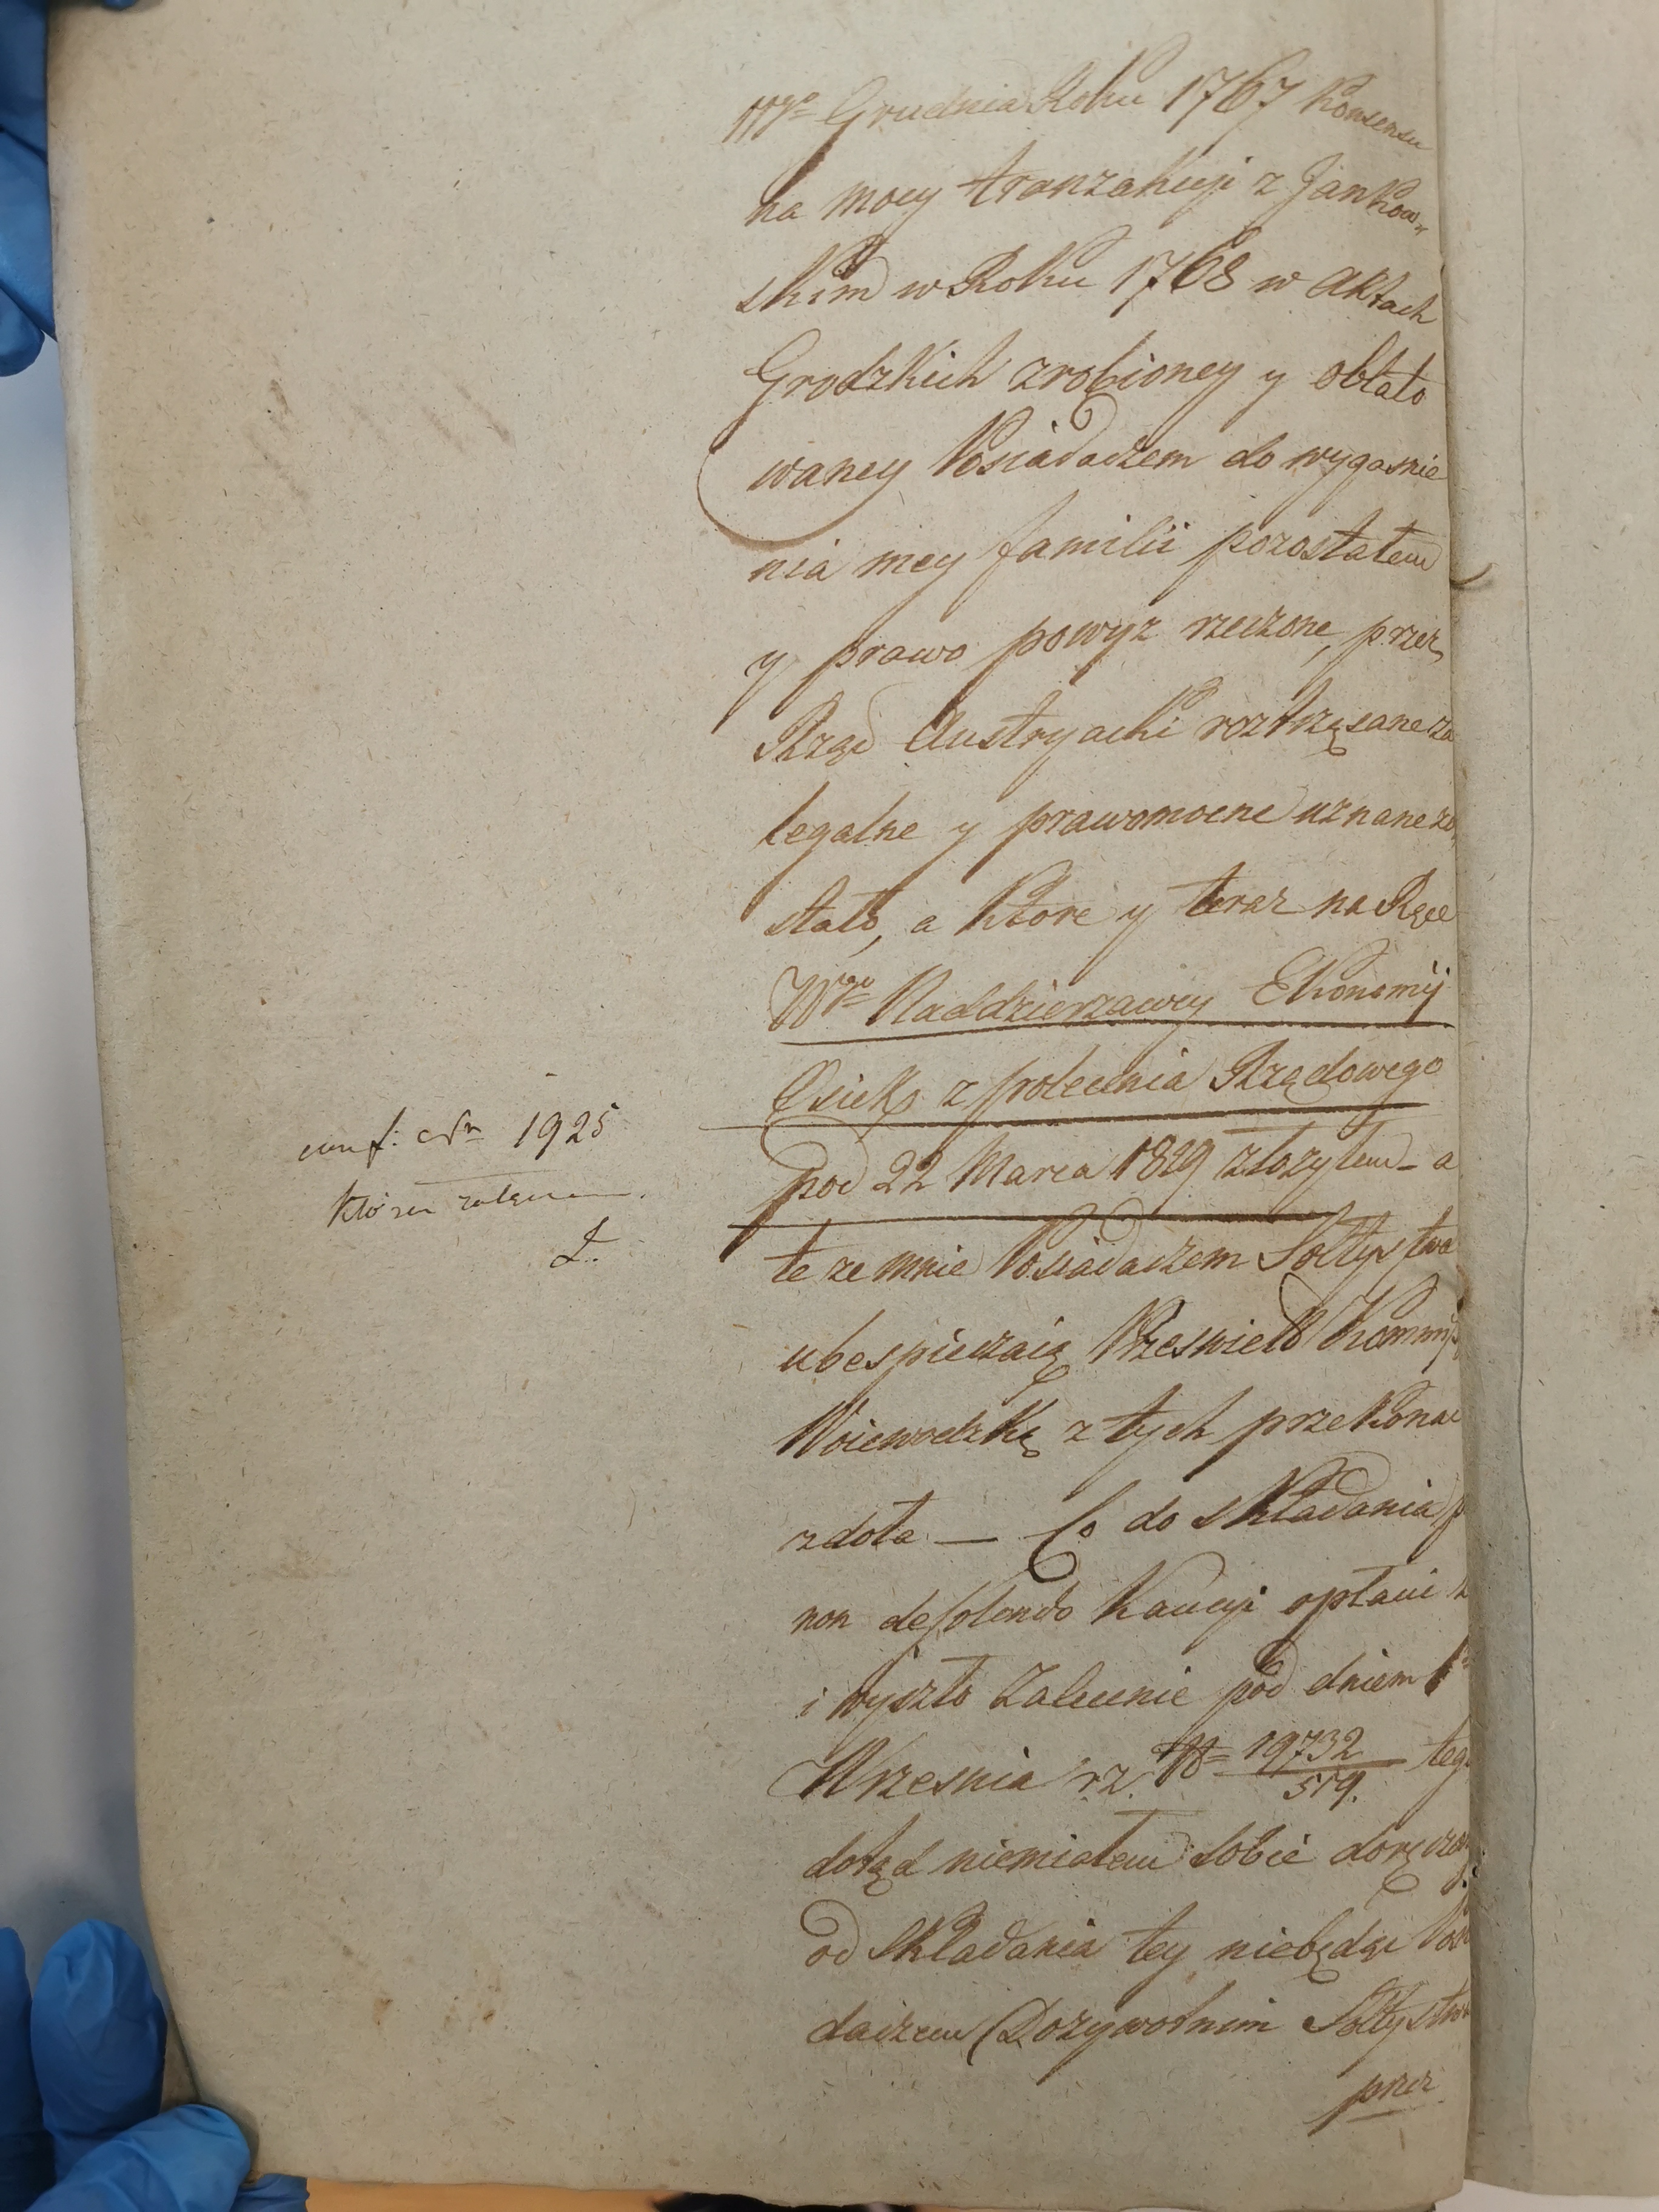 11go Grudnia Roku 1767 Konsensu
na mocy tranzakcyi z Jankow-
skim w Roku 1768 w Aktach
Grodzkich zrobioney y oblato
waney Posiadaczem do wygasnie
nia mey familii pozostałem
y prawo powyz rzeczone, przez
Rząd Austryacki roztrząsane za
legalne y prawomocne uznane zo
stało, a ktore y teraz na Ręce
Wgo Naddzierzawcy Ekonomij
Osiek z polecenia Rządowego
pod 22 Marca 1829 złozyłem – a
te ze mnie Posiadaczem Sołtystwa
ubespieczaią Prześwietą Kommis
Woiewodzką z tych przekonać
zdoła — Co do składania
non desolando Kaucyi opłaci
i wyszło Zalecenie pod dniem
Wrzesnia r.z. N= 19732/519. tego
dotąd niemiałem sobie doręczo
od składania tey niebędąc Posia
daczem Dozywotnim Sołtystwa
przez
conf: Nn 1925
którą załącza
Ł.